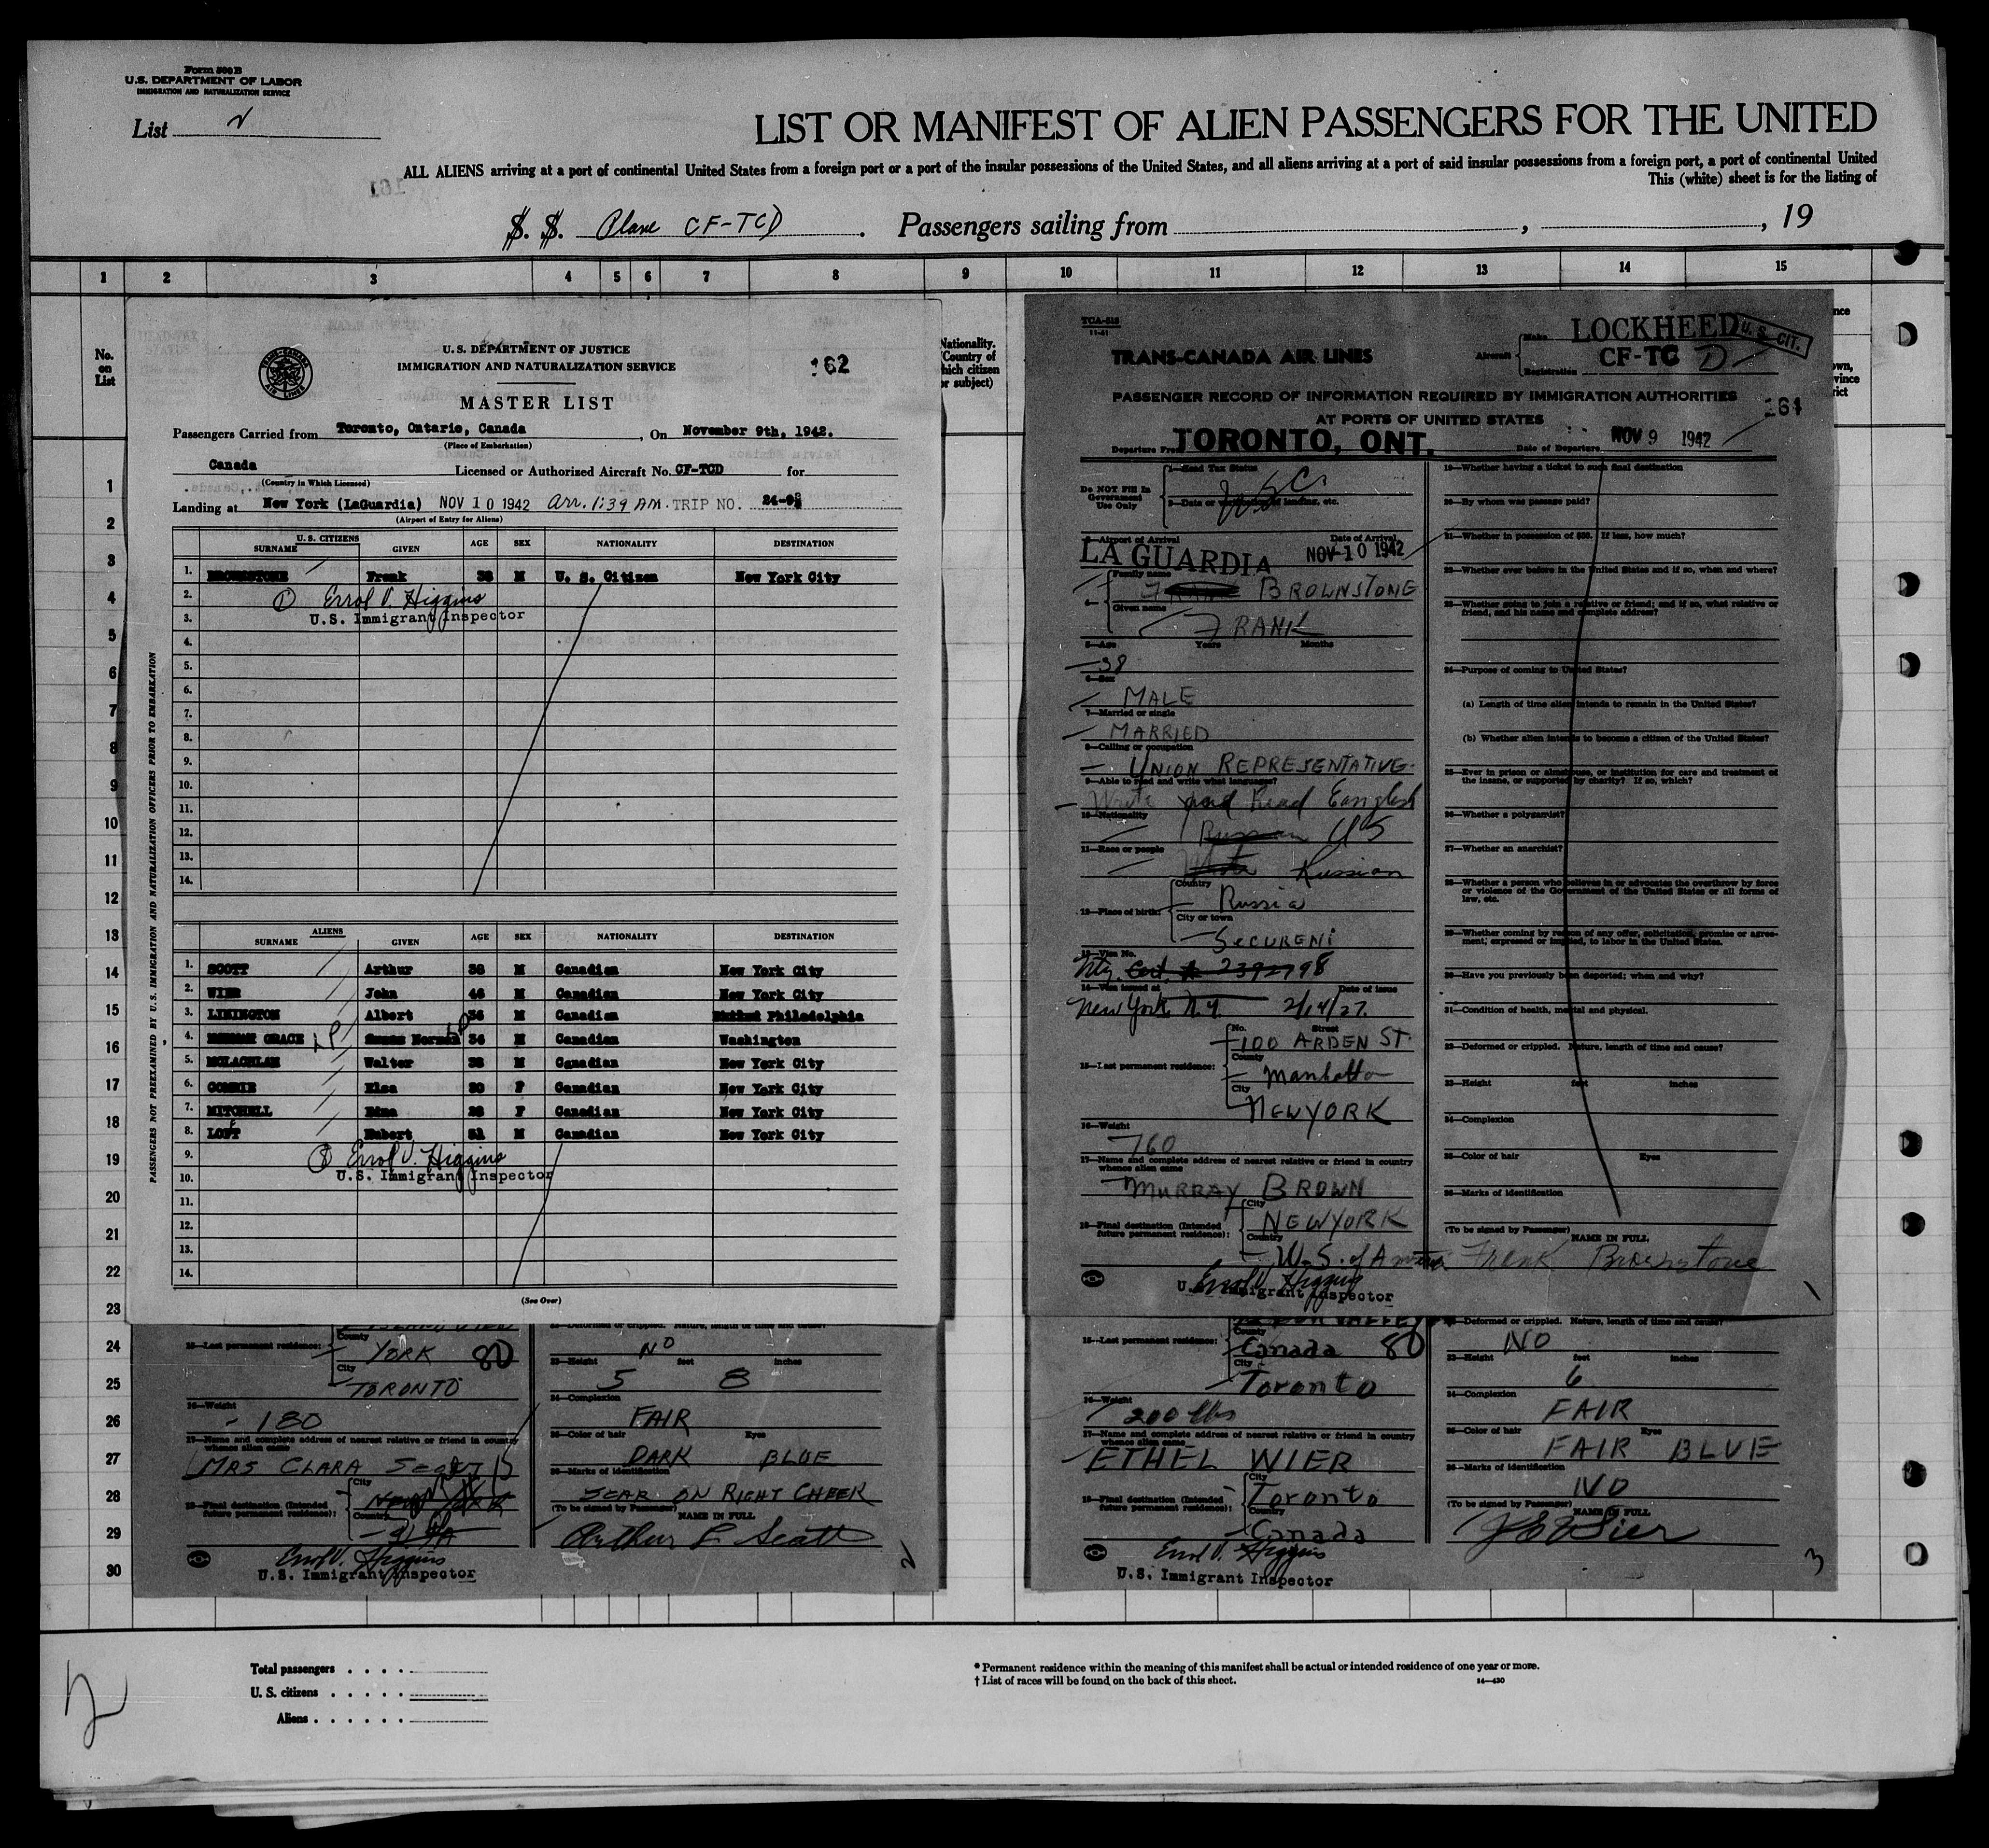 Form 500 B
U.S. DEPARTMENT OF LABOR
IMMIGRATION AND NATURALIZATION SERVICE
List
LIST OR MANIFEST OF ALIEN PASSENGERS FOR THE UNITED
ALL ALIENS arriving at a port of continental United States from a foreign port or a port of the insular possessions of the United States, and all aliens arriving at a port of said insular possessions from a foreign port, a port of continental United
This (white) sheet is for the listing of
161
S. S. Plane CF-TCD. Passengers sailing from , , 19
1 2 3 4 5 6 7 8 9 10 11 12 13 14 15
No. on List
Nationality. (Country of which citizen or subject)
TRANS-CANADA AIR LINES
U.S. DEPARTMENT OF JUSTICE
IMMIGRATION AND NATURALIZATION SERVICE
162
MASTER LIST
Passengers Carried from Toronto, Ontario, Canada, On November 9th, 1942.
(Place of Embarkation)
Canada Licensed or Authorized Aircraft No. CF-TCD for
(Country in Which Licensed)
Landing at New York (LaGuardia) NOV 10 1942 Arr. 1:39 AM. TRIP NO. 24-98
(Airport of Entry for Aliens)
U.S. CITIZENS
SURNAME GIVEN AGE SEX NATIONALITY DESTINATION
1. BROWNSTONE Frank 38 M U. S. Citizen New York City
2. (1) Errol V. Higgins
3. U.S. Immigrant Inspector
4.
5.
6.
7.
8.
9.
10.
11.
12.
13.
14.
ALIENS
SURNAME GIVEN AGE SEX NATIONALITY DESTINATION
1. SCOTT Arthur 38 M Canadian New York City
2. WIER John 46 M Canadian New York City
3. LIMINGTON Albert 36 M Canadian Philadelphia
4. GRACE Norman 34 M Canadian Washington
5. MCLACHLAN Walter 38 M Canadian New York City
6. GOMRIE Elsa 30 F Canadian New York City
7. MITCHELL Edna 28 F Canadian New York City
8. LOFT Hubert 51 M Canadian New York City
9. (8) Errol V. Higgins
10. U.S. Immigrant Inspector
11.
12.
13.
14.
(See Over)
PASSENGERS NOT PREEXAMINED BY U.S. IMMIGRATION AND NATURALIZATION OFFICERS PRIOR TO EMBARKATION
1
2
3
4
5
6
7
8
9
10
11
12
13
14
15
16
17
18
19
20
21
22
23
24
25
26
27
28
29
30
TCA-518
11-41
TRANS-CANADA AIR LINES
Aircraft Make LOCKHEED
Registration CF-TC D
U. S. CIT.
PASSENGER RECORD OF INFORMATION REQUIRED BY IMMIGRATION AUTHORITIES
AT PORTS OF UNITED STATES
161
Departure From TORONTO, ONT. Date of Departure NOV 9 1942
Do NOT Fill In Government Use Only
1—Head Tax Status
USC
2—Date or landing, etc.
3—Airport of Arrival Date of Arrival
LA GUARDIA NOV 10 1942
4— Family name BROWNSTONE
Given name FRANK
5—Age Years Months
38
6—Sex
MALE
7—Married or single
MARRIED
8—Calling or occupation
UNION REPRESENTATIVE.
9—Able to read and write what languages?
Write and Read English
10—Nationality
Russian US
11—Race or people
White Russian
12—Place of birth: Country Russia
City or town SECURENI
13—Visa No.
Ntz. Cert. # 2392798
14—Visa issued at Date of issue
New York N.Y. 2/14/27.
15—Last permanent residence: No. Street
100 ARDEN ST.
County Manhatta
City NEW YORK
16—Weight
160
17—Name and complete address of nearest relative or friend in country whence alien came
MURRAY BROWN
18—Final destination (Intended future permanent residence): City NEW YORK
Country U.S. of America
Errol V. Higgins
U.S. Immigrant Inspector
19—Whether having a ticket to such final destination
20—By whom was passage paid?
21—Whether in possession of $50. If less, how much?
22—Whether ever before in the United States and if so, when and where?
23—Whether going to join a relative or friend; and if so, what relative or friend, and his name and complete address?
24—Purpose of coming to United States?
(a) Length of time alien intends to remain in the United States?
(b) Whether alien intends to become a citizen of the United States?
25—Ever in prison or almshouse, or institution for care and treatment of the insane, or supported by charity? If so, which?
26—Whether a polygamist?
27—Whether an anarchist?
28—Whether a person who believes in or advocates the overthrow by force or violence of the Government of the United States or all forms of law, etc.
29—Whether coming by reason of any offer, solicitation, promise or agreement, expressed or implied, to labor in the United States.
30—Have you previously been deported; when and why?
31—Condition of health, mental and physical.
32—Deformed or crippled. Nature, length of time and cause?
33—Height feet inches
34—Complexion
35—Color of hair Eyes
36—Marks of identification
(To be signed by Passenger) NAME IN FULL
Frank Brownstone
15—Last permanent residence: County YORK 80
City TORONTO
16—Weight
180
17—Name and complete address of nearest relative or friend in country whence alien came
MRS CLARA Scott
18—Final destination (Intended future permanent residence): City NEW YORK
Country
Errol V. Higgins
U.S. Immigrant Inspector
32—Deformed or crippled. Nature, length of time and cause?
NO
33—Height feet inches
5 8
34—Complexion
FAIR
35—Color of hair Eyes
DARK BLUE
36—Marks of identification
SCAR ON RIGHT CHEEK
(To be signed by Passenger) NAME IN FULL
Arthur L Scott
2
15—Last permanent residence: County Canada 80
City Toronto
16—Weight
200 lbs
17—Name and complete address of nearest relative or friend in country whence alien came
ETHEL WIER
18—Final destination (Intended future permanent residence): City Toronto
Country Canada
Errol V. Higgins
U.S. Immigrant Inspector
32—Deformed or crippled. Nature, length of time and cause?
NO
33—Height feet inches
6
34—Complexion
FAIR
35—Color of hair Eyes
FAIR BLUE
36—Marks of identification
NO
(To be signed by Passenger) NAME IN FULL
J E Wier
3
Total passengers
U. S. citizens
Aliens
* Permanent residence within the meaning of this manifest shall be actual or intended residence of one year or more.
† List of races will be found on the back of this sheet.
14—430
2